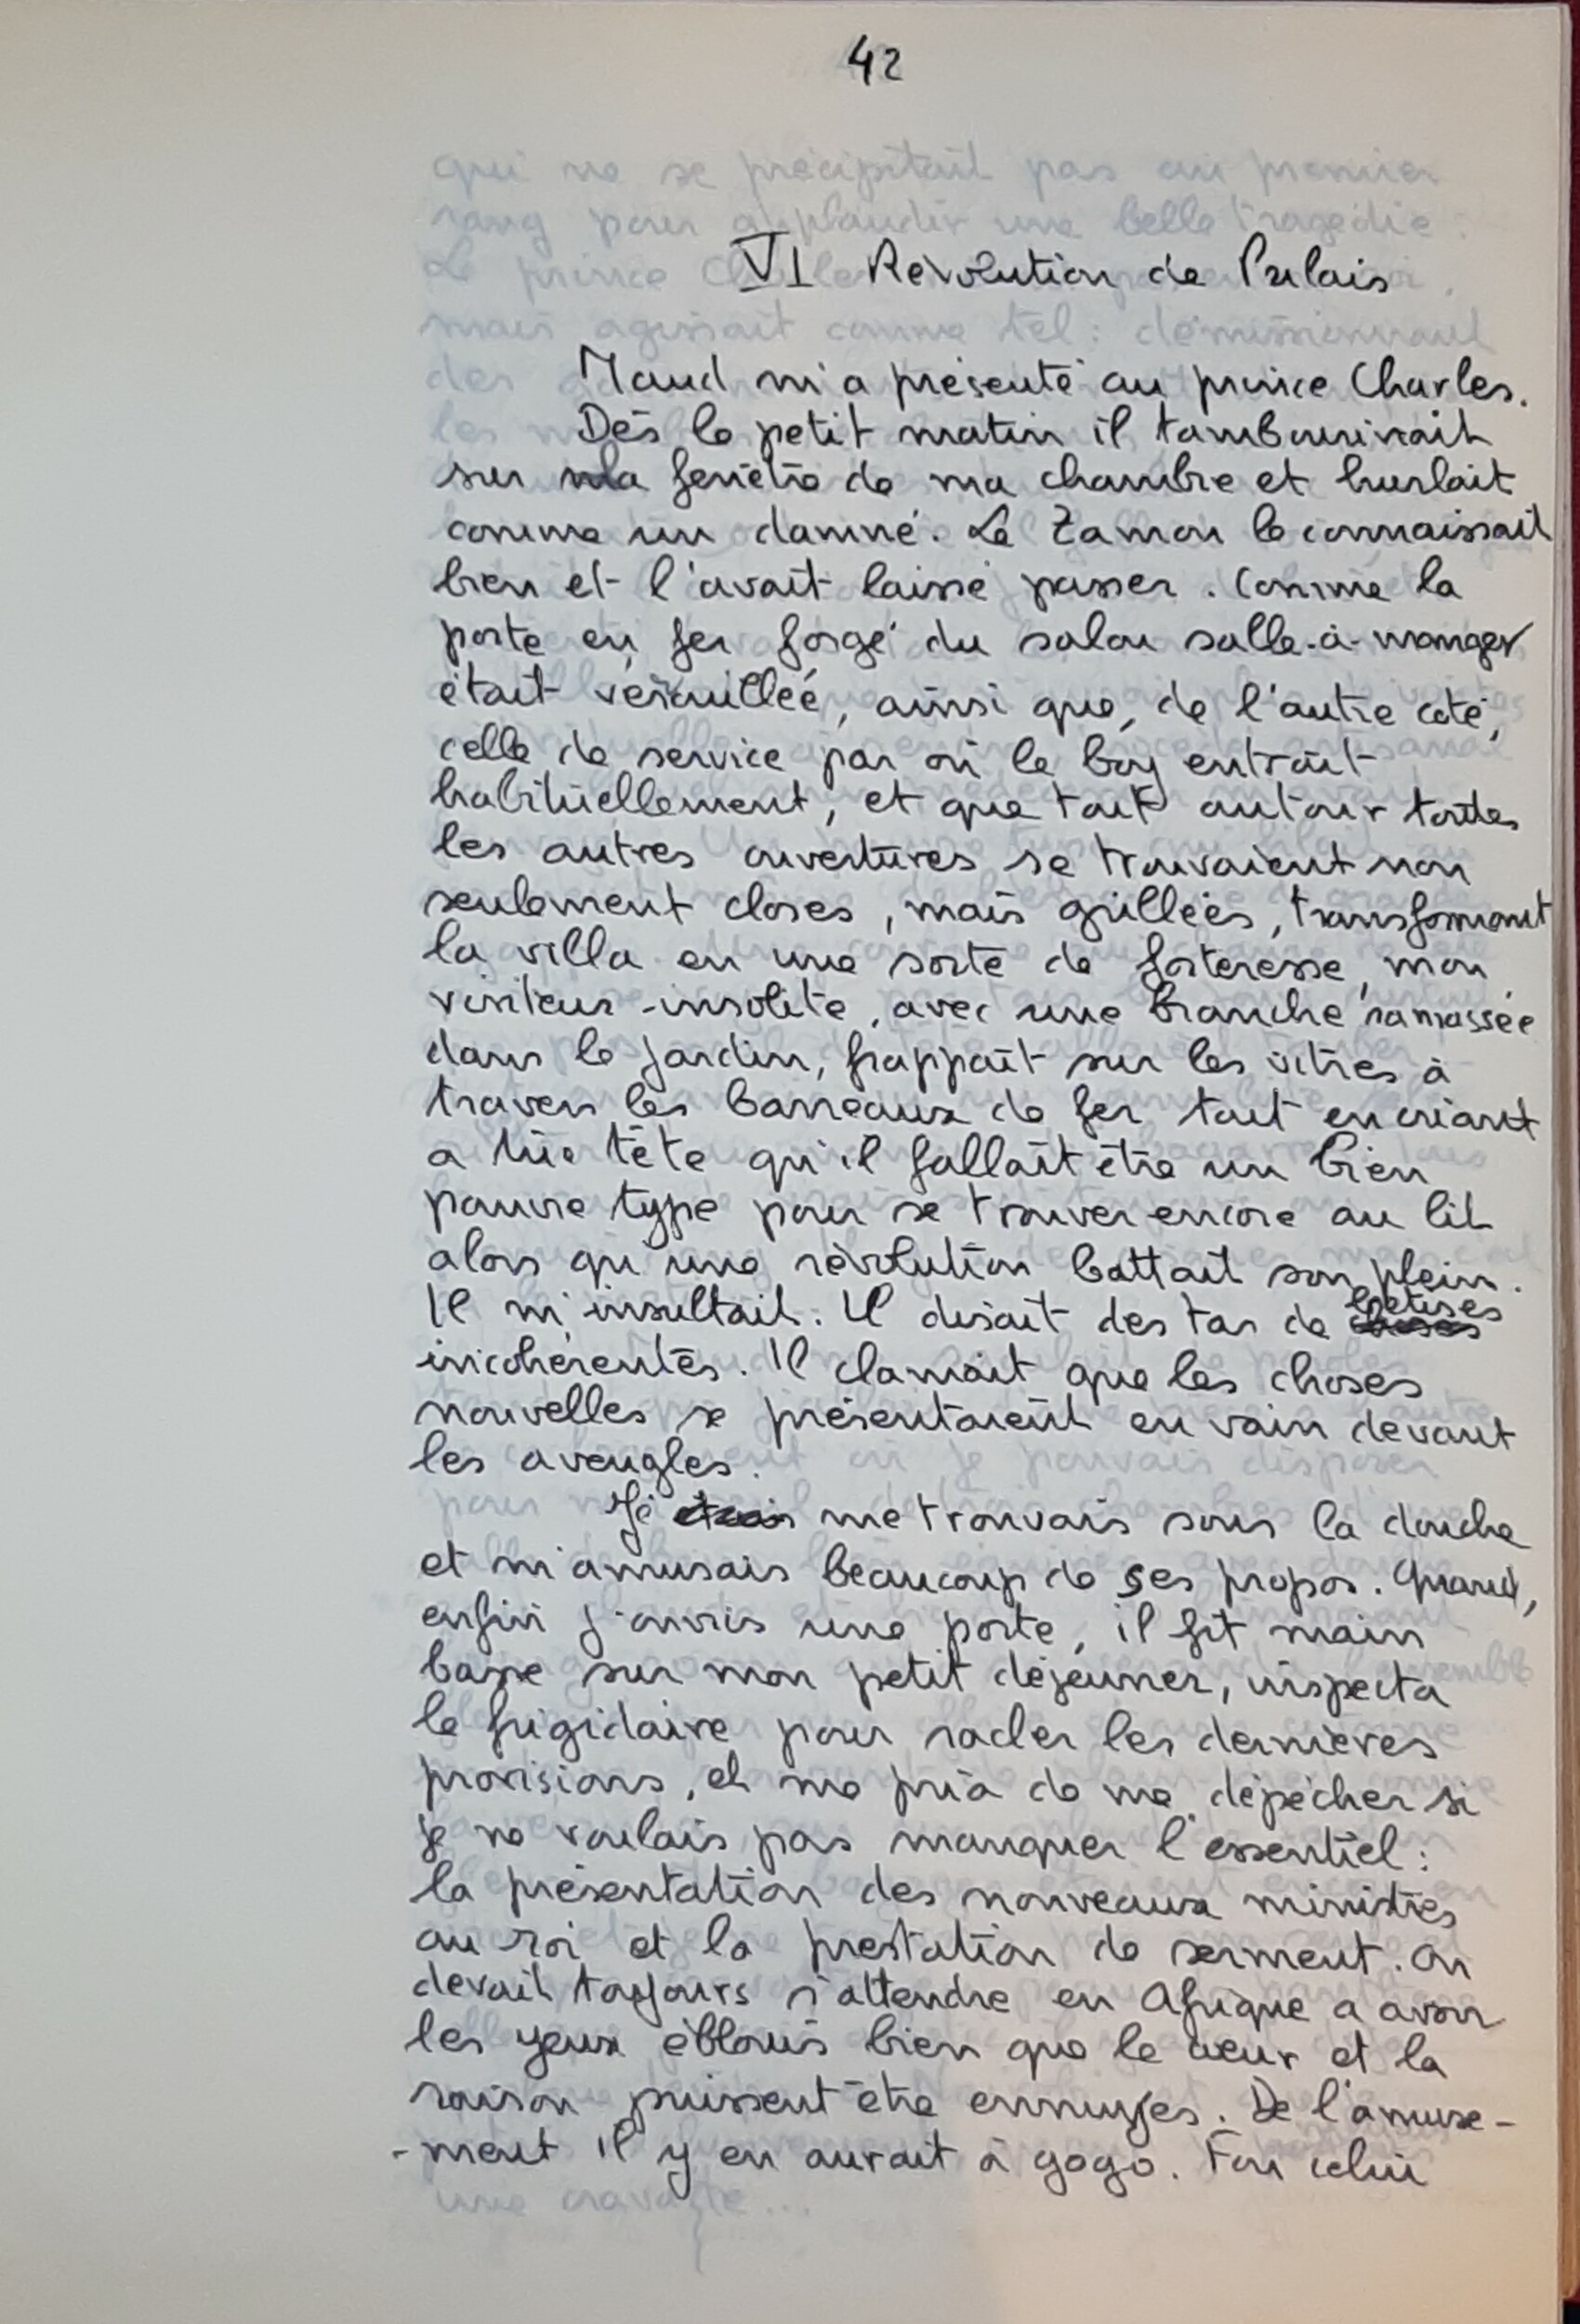 42
VI Révolution de Palais
Maud m'a présenté au prince Charles.
Dès le petit matin il tambourinait
sur la fenêtre de ma chambre et hurlait
comme un damné. Le Zamou le connaissait
bien et l'avait laissé passer. Comme la
porte en fer forgé du salon salle-à-manger
était verouillée, ainsi que, de l'autre coté,
celle de service par où le boy entrait
habituellement, et que tout autour toutes
les autres ouvertures se trouvaient non
seulement closes, mais grillées, transformant
la villa en une sorte de forteresse, mon
visiteur insolite, avec une branche ramassée
dans le jardin, frappait sur les vitres à
travers les barreaux de fer tout en criant
à tue tête qu'il fallait être un bien
pauvre type pour se trouver encore au lit
alors qu'une révolution battait son plein.
Il m'insultait. Il disait des tas de bêtises
incohérentes. Il clamait que les choses
nouvelles se présentaient en vain devant
les aveugles.
Je me trouvais sous la douche
et m'amusais beaucoup de ses propos. Quand,
enfin j'ouvris une porte, il fit main
basse sur mon petit déjeuner, inspecta
le frigidaire pour racler les dernières
provisions, et me pria de me dépêcher si
je ne voulais pas manquer l'essentiel :
la présentation des nouveaux ministres
au roi et la prestation de serment. On
devait toujours s'attendre en Afrique a avoir
les yeux éblouis bien que le cœur et la
raison puissent être ennuyés. De l'amuse-
-ment il y en aurait à gogo. Fou celui